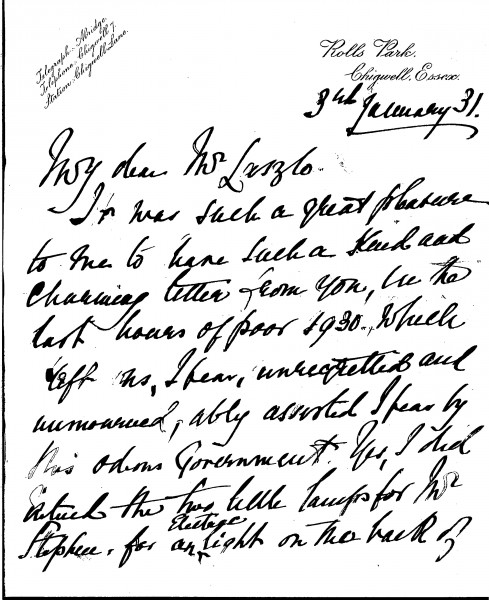 Telegraph. Abridge.
Telephone. Chigwell 7.
Station. Chigwell Lane.
Rolls Park.
Chigwell. Essex.
3rd January 31.
My dear Mr Laszlo.
It was such a great pleasure
to me to have such a kind and
charming letter from you, in the
last hours of poor 1930. Which
left us, I fear, unregretted and
unmourned, ably assisted I fear by
this odious Government. Yes, I did
the two little lamps for Mr
Stephen. for an Electric light on the back of